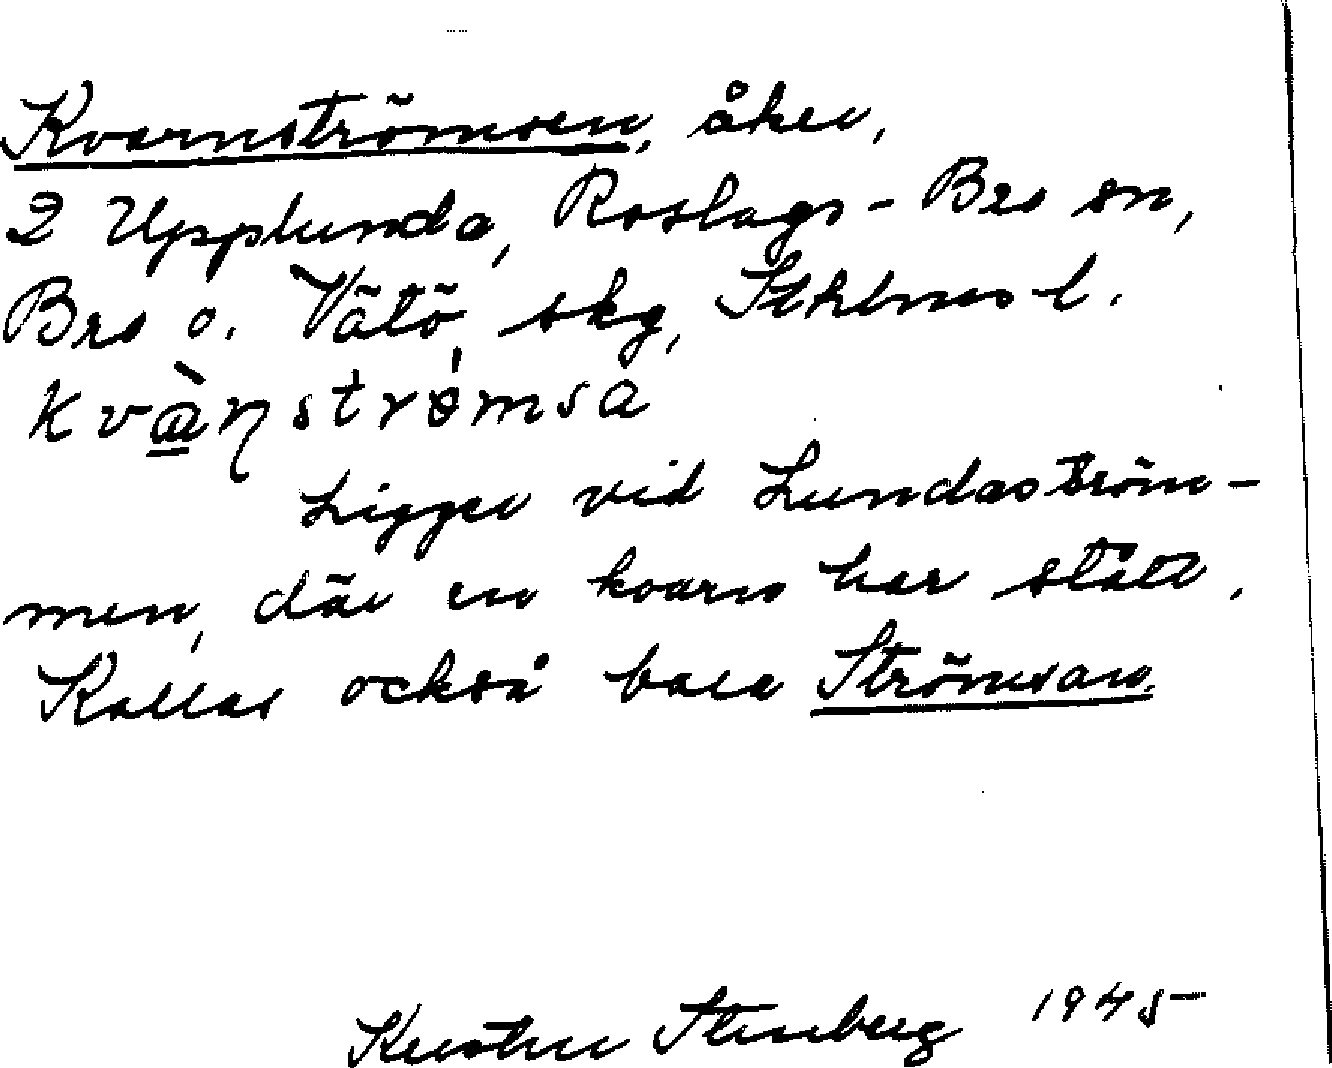 Kvarnströmsen, åker,
2 Upplunda, Roslags-Bro sn,
Bro o. Vätö skg, Sthlms l.
kvæ̀ŋstrømsa
Ligger vid Lundaström-
men, där en kvarn har stått.
Kallas också bara Strömsan.
Kerstin Stenberg 1945